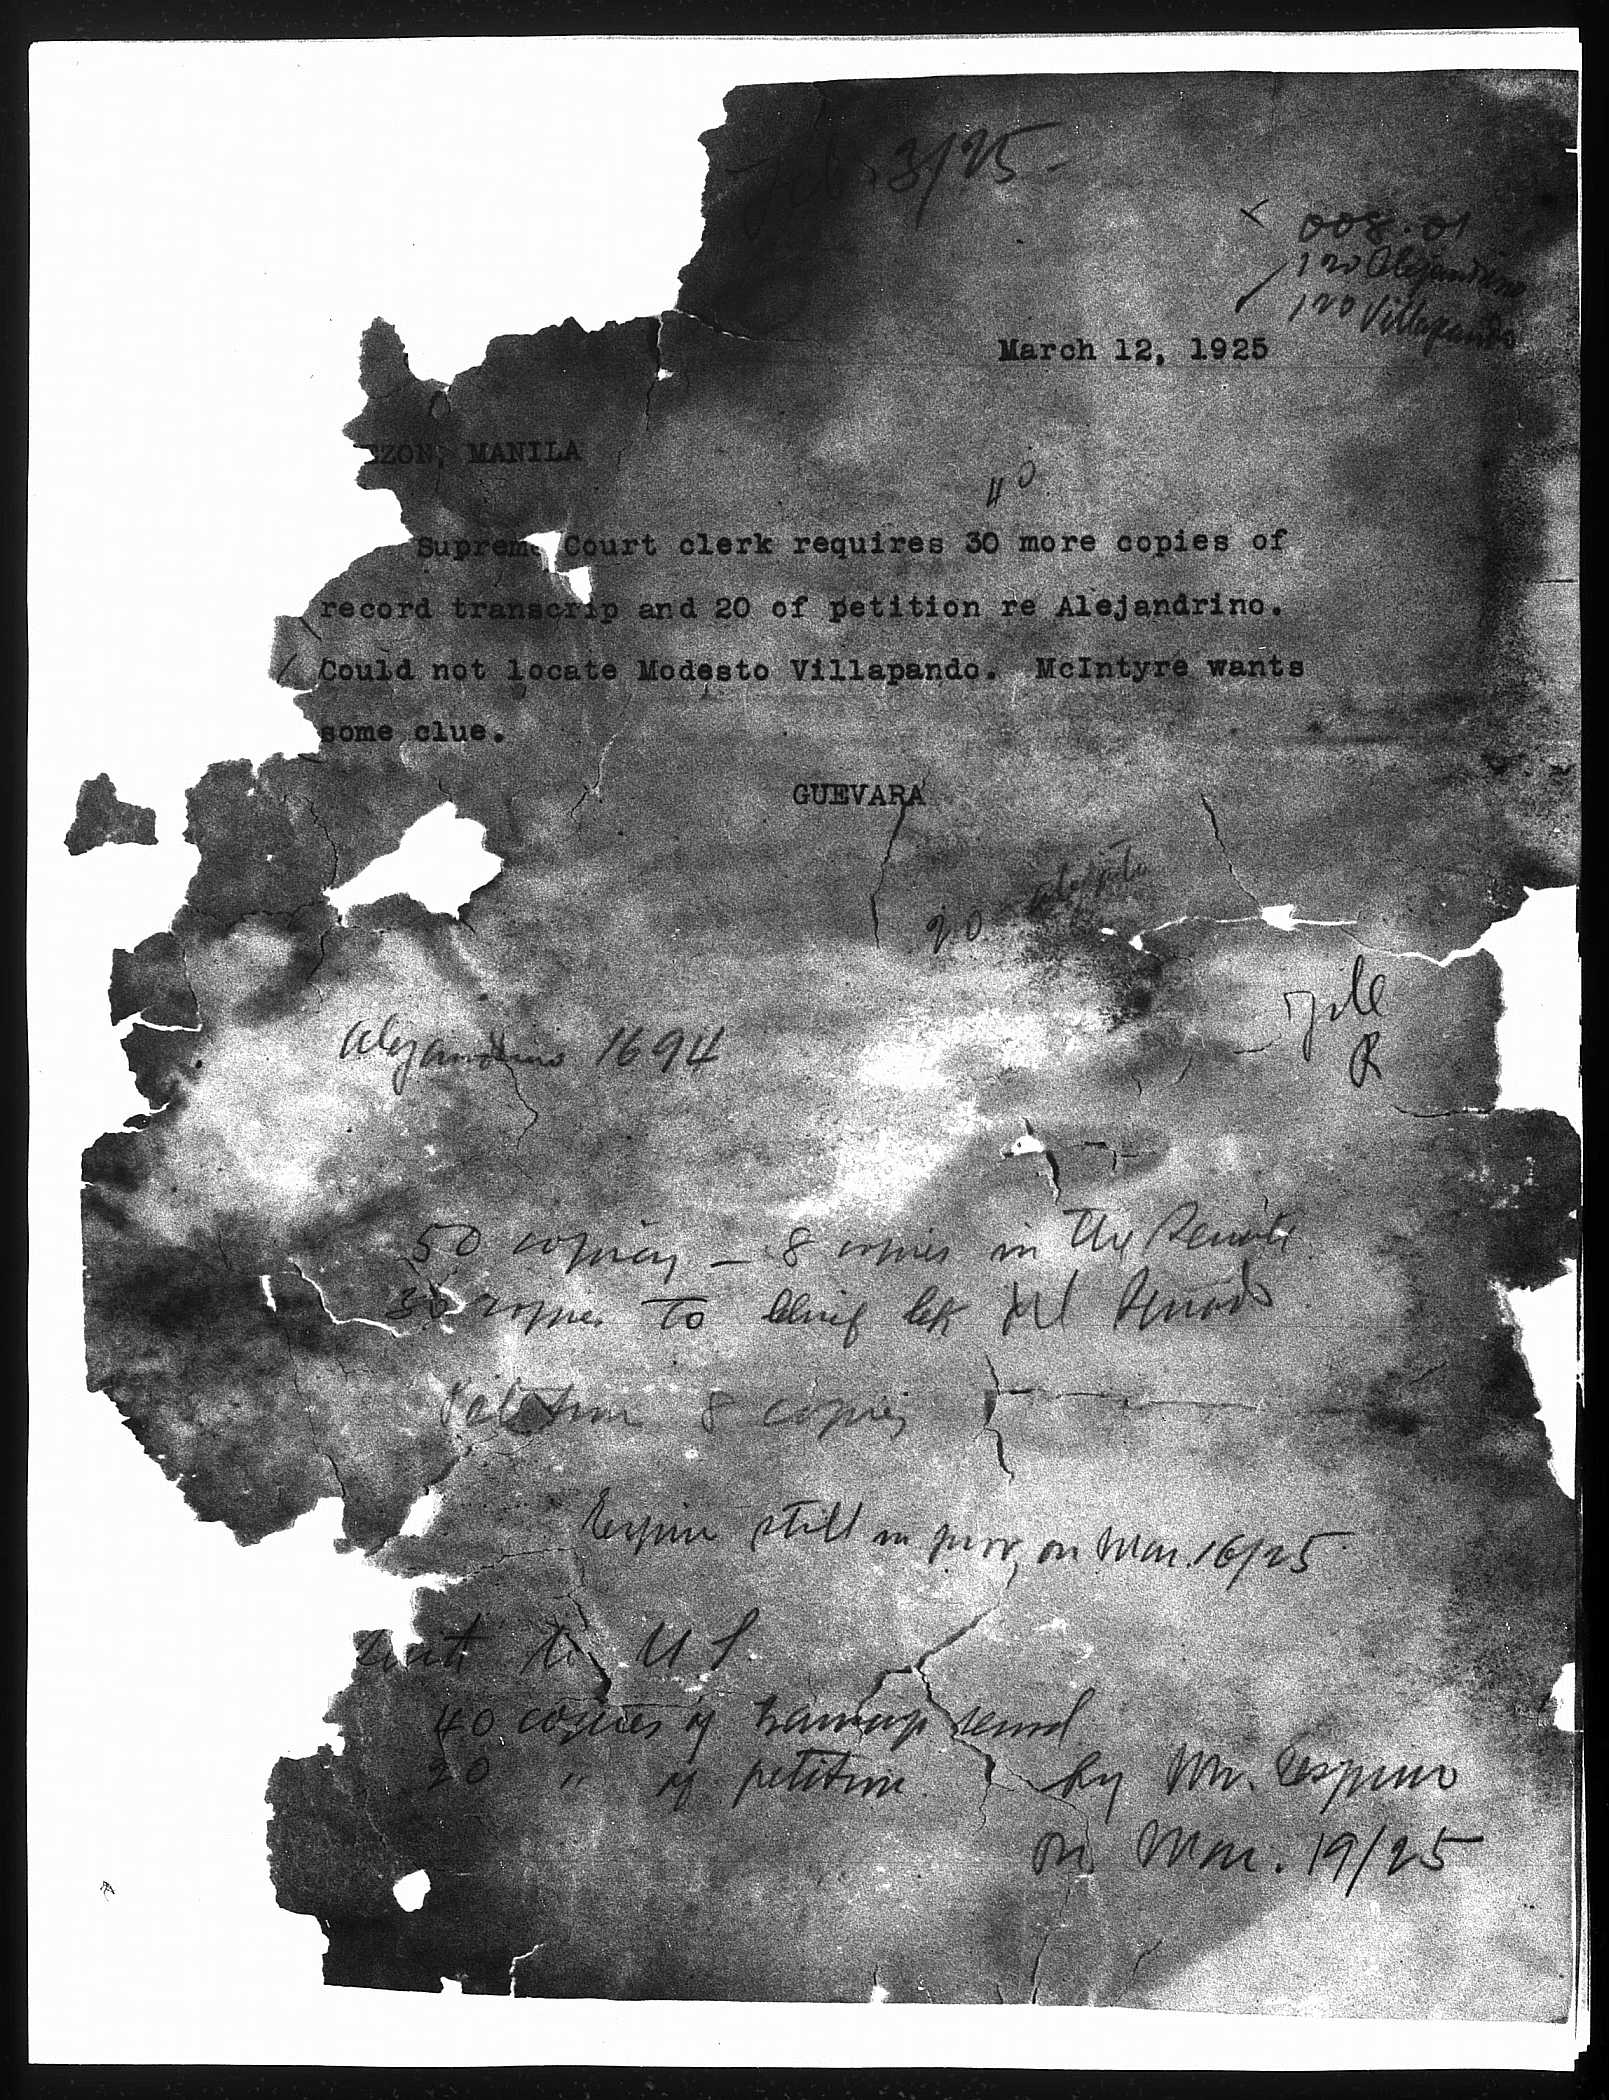 Feb. 3/25 -
008.01
120 Alejandrino
120 Villapando
March 12, 1925
EZON, MANILA
40
Supreme Court clerk requires 30 more copies of
record transcrip and 20 of petition re Alejandrino.
Could not locate Modesto Villapando. McIntyre wants
some clue.
GUEVARA
20
file
R
Alejandrino 1694
50 copies - 8 copies in the Senate
30 copies to
Petition 8 copies
still in on Mar. 16/25
Sent to U S
40 copies of transcrip record
20 " of petition by Mr. Espino
on Mar. 19/25